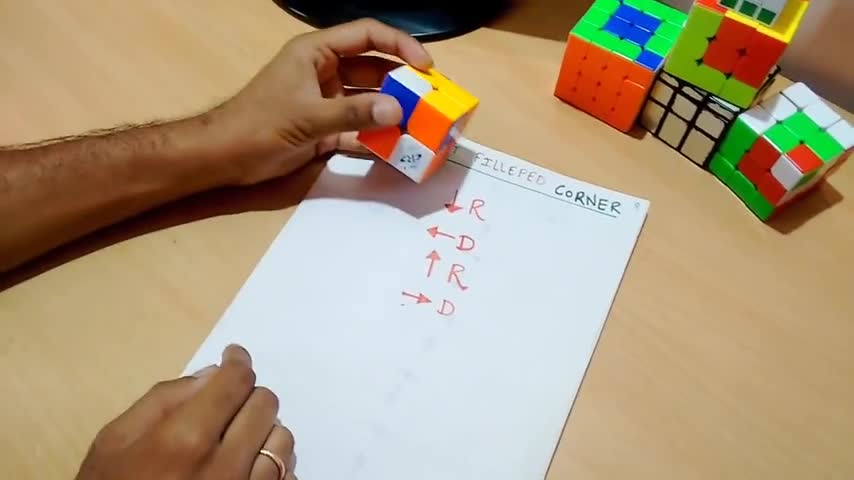 FILLEPED CORNER ?
↓ R
← D
↑ R
→ D